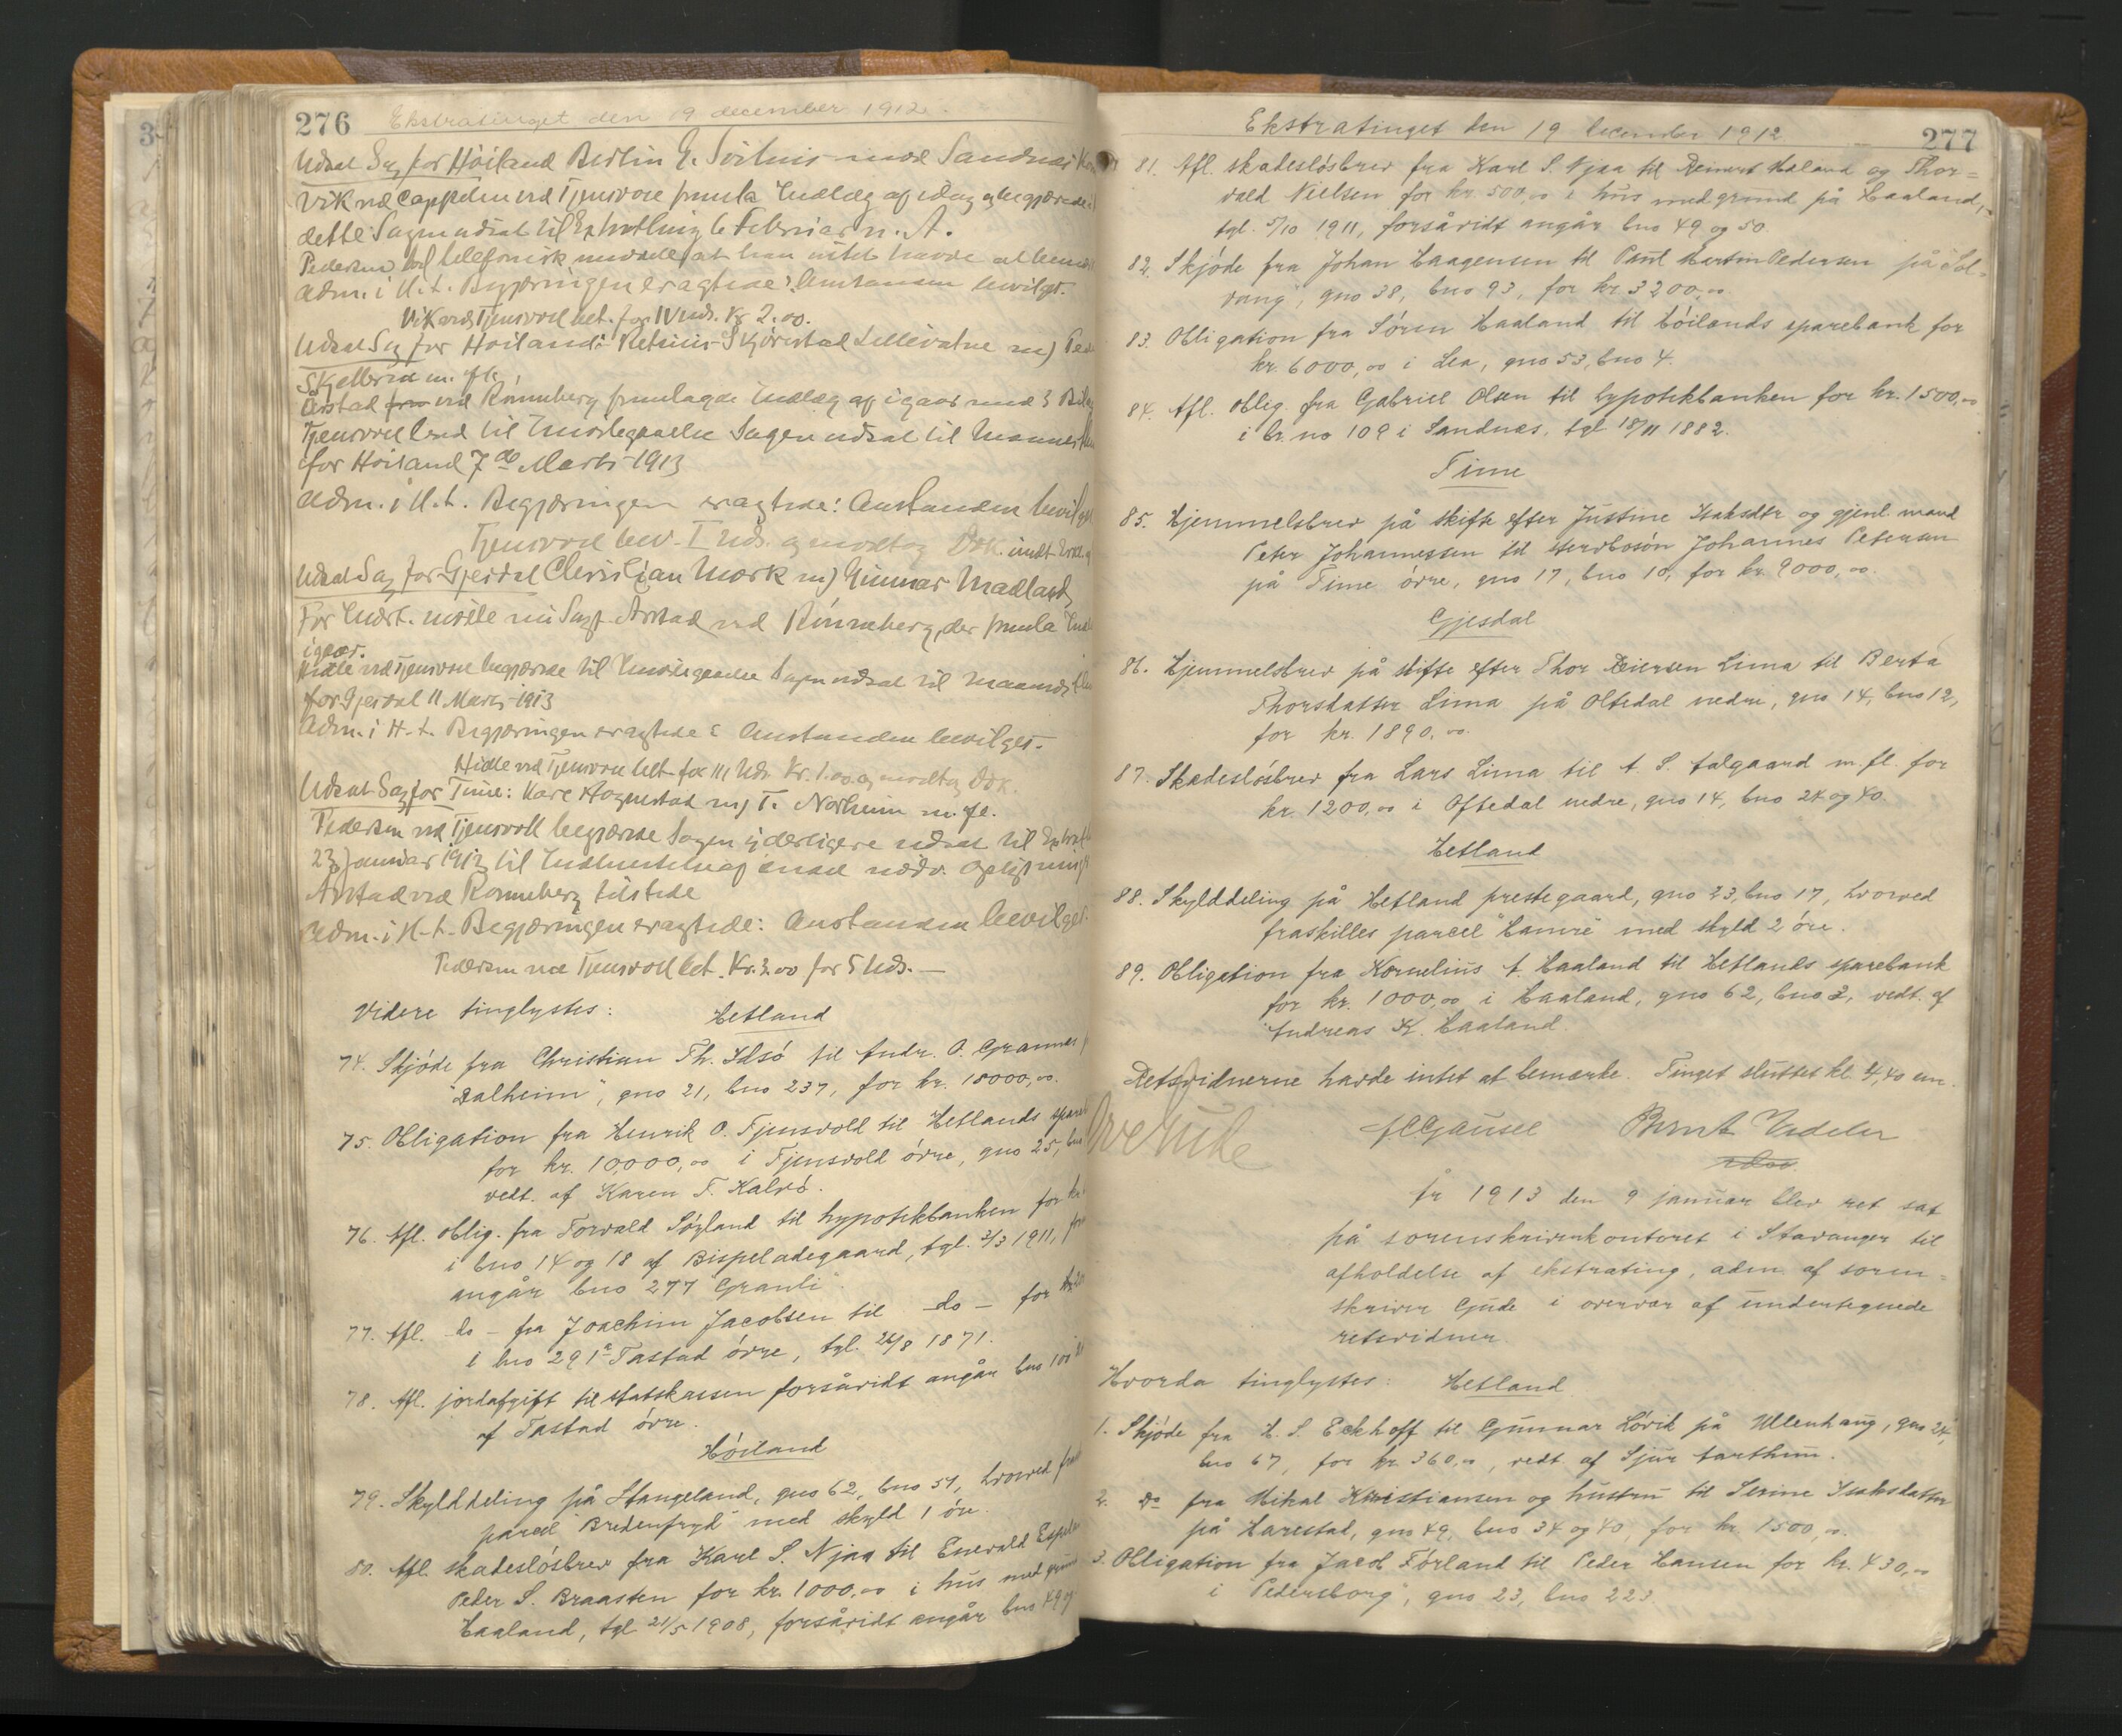 276 Ekstratinget den 19 december 1912.
Udsat Sag for Höiland Berlin G. Soilnis mod Sandnæs
Vik ved Cappelen ved Tjensvold freml. Indlæg af idag og begjærede
dette Sagen udsat til Extrathing 6 Februar n. A.
Pedersen lod telefonisk meddele, at han intet havde at bemærke
Adm. i H. t. Begjæringen eragtede: Anstanden bevilges.
Vik ved Tjensvoll bet. for IV Uds. Kr 2.00.
Udsat Sag for Höiland: Skjörestad Lillevatne m)
Skjelbred m. fl.
Arstad ved Rönneberg fremlagde Indlæg af igaar med 3 Bilag
Tjensvoll bad til Imødegaaelse Sagen udsat til
for Höiland 7de Marts 1913
Adm. i H. t. Begjæringen eragtede: Anstanden bevilges
Tjensvoll bet. I Uds. og modtog Dok. indt
Udsat Sag for Gjesdal Christian Mork m) Gunnar Madland
For Indst. mödte nu Sagf. Arstad ved Rönneberg, der freml.
igaar.
Hidle ved Tjensvoll begjærede til Imødegaaelse Sagen udsat til Maaneds
for Gjesdal 11 Marts 1913
Adm. i H. t. Begjæringen eragtede: Anstanden bevilges.
Hidle ved Tjensvoll bet. for III Uds. Kr. 1.00 og modtog Dok.
Udsat Sag for Time: Kare Hognestad m) T. Norheim m. fl.
Pedersen ved Tjensvoll begjærede Sagen yderligere udsat til
23 Januar 1913 til Indhentelse af endel nødv. Oplysning
Arstad ved Rönneberg tilstede
Adm. i H. t. Begjæringen eragtede: Anstanden bevilges.
Pedersen ved Tjensvoll bet. Kr. 3.00 for 5 Uds.—
Videre tinglystes: Hetland
74. Skjöde fra Christian Th. Idsö til Andr. O. Grannes
"Dalheim", gno 21, bno 237, for kr. 18000,00.
75. Obligation fra Henrik O. Tjensvold til Hetlands spareb
for kr. 10,000,00 i Tjensvold övre, gno 25, bno
vedt. af Karen T. Kalvö.
76. Afl. oblig. fra Torvald Söyland til hypotekbanken for kr.
i bno 14 og 18 af Bispeladegaard, tgl. 3/3 1911,
angår bno 277 "Granli".
77. Afl. do – fra Joachim Jacobsen til – do – for
i bno 291a Tastad övre, tgl. 26/8 1871.
78. Afl. jordafgift til statskassen forsåvidt angår bno 100
af Tastad övre.
Höiland
79. Skylddeling på Stangeland, gno 62, bno 51, hvorved
parcel "Bredenfryd" med skyld 1 öre.
80. Afl. skadeslösbrev fra Karl S. Njaa til Enevald
Peder S. Braasten for kr. 1000,00 i hus med grund
Haaland, tgl 21/5 1908, forsåvidt angår bno 49 og
Ekstratinget den 19 december 1912 277
81. Afl. skadeslösbrev fra Karl S. Njaa til Reinert Haland og Thor=
vald Nielsen for kr. 500,00 i hus med grund på Haaland,
tgl. 5/10 1911, forsåvidt angår bno 49 og 50.
82. Skjöde fra Johan Haagensen til Paul Martin Pedersen på "Sol=
vang", gno 38, bno 93, for kr 3200,00.
83. Obligation fra Sören Haaland til Höilands sparebank for
kr. 6000,00 i Lea, gno 53, bno 4.
84. Afl. oblig. fra Gabriel Olsen til hypotekbanken for kr. 1500,00
i br. no 109 i Sandnæs, tgl 18/11 1882.
Time
85. Hjemmelsbrev på skifte efter Justine Isaksdtr og gjenl. mand
Peter Johannessen til sterbosön Johannes Petersen
på Time övre, gno 17, bno 10, for kr. 9000,00.
Gjesdal
86. Hjemmelsbrev på skifte efter Thor Reiersen Lima til Berta
Thorsdatter Lima på Oltedal nedre, gno 14, bno 12,
for kr. 1890,00.
87. Skadeslösbrev fra Lars Lima til A. S. Aalgaard m. fl. for
kr. 1200,00 i Oftedal nedre, gno 14, bno 24 og 40.
Hetland
88. Skylddeling på Hetland prestegaard, gno 23, bno 17, hvorved
fraskilles parcel "Hamre" med skyld 2 öre.
89. Obligation fra Kornelius A. Haaland til Hetlands sparebank
for kr. 1000,00 i Haaland, gno 62, bno 2, vedt. af
Andreas K. Haaland.
Retsvidnerne havde intet at bemærke. Tinget sluttet kl. 4,40 em.
JCGausel Bernt Vadeler
År 1913 den 9 januar blev ret sat
på sorenskriverkontoret i Stavanger til
afholdelse af ekstrating, adm. af soren=
skriver Gjude i overvær af undertegnede
retsvidner.
Hvorda tinglystes: Hetland.
1. Skjöde fra H. S. Eckhoff til Gunnar Lövik på Ullenhaug, gno 24,
bno 67, for kr. 360,00, vedt. af Sjur Aartheim.
2. Do fra Mikal Kristiansen og hustru til Serine Isaksdatter
på Harestad, gno 49, bno 34 og 40, for kr. 1500,00.
3. Obligation fra Jacob Förland til Peder Hansen for kr. 430,00
i "Pedersborg", gno 23, bno 223.